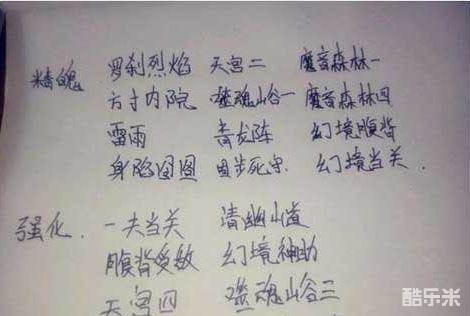 精魄 罗刹烈焰 天宫二 魔音森林一
方寸内院 噬魂山谷一 魔音森林四
雷雨 青龙阵 幻境腹背
身陷囹圄 固步死守 幻境当关.
强化. 一夫当关 清幽山道
腹背受敌 幻境神助
天宫四 噬魂山谷三
酷乐米